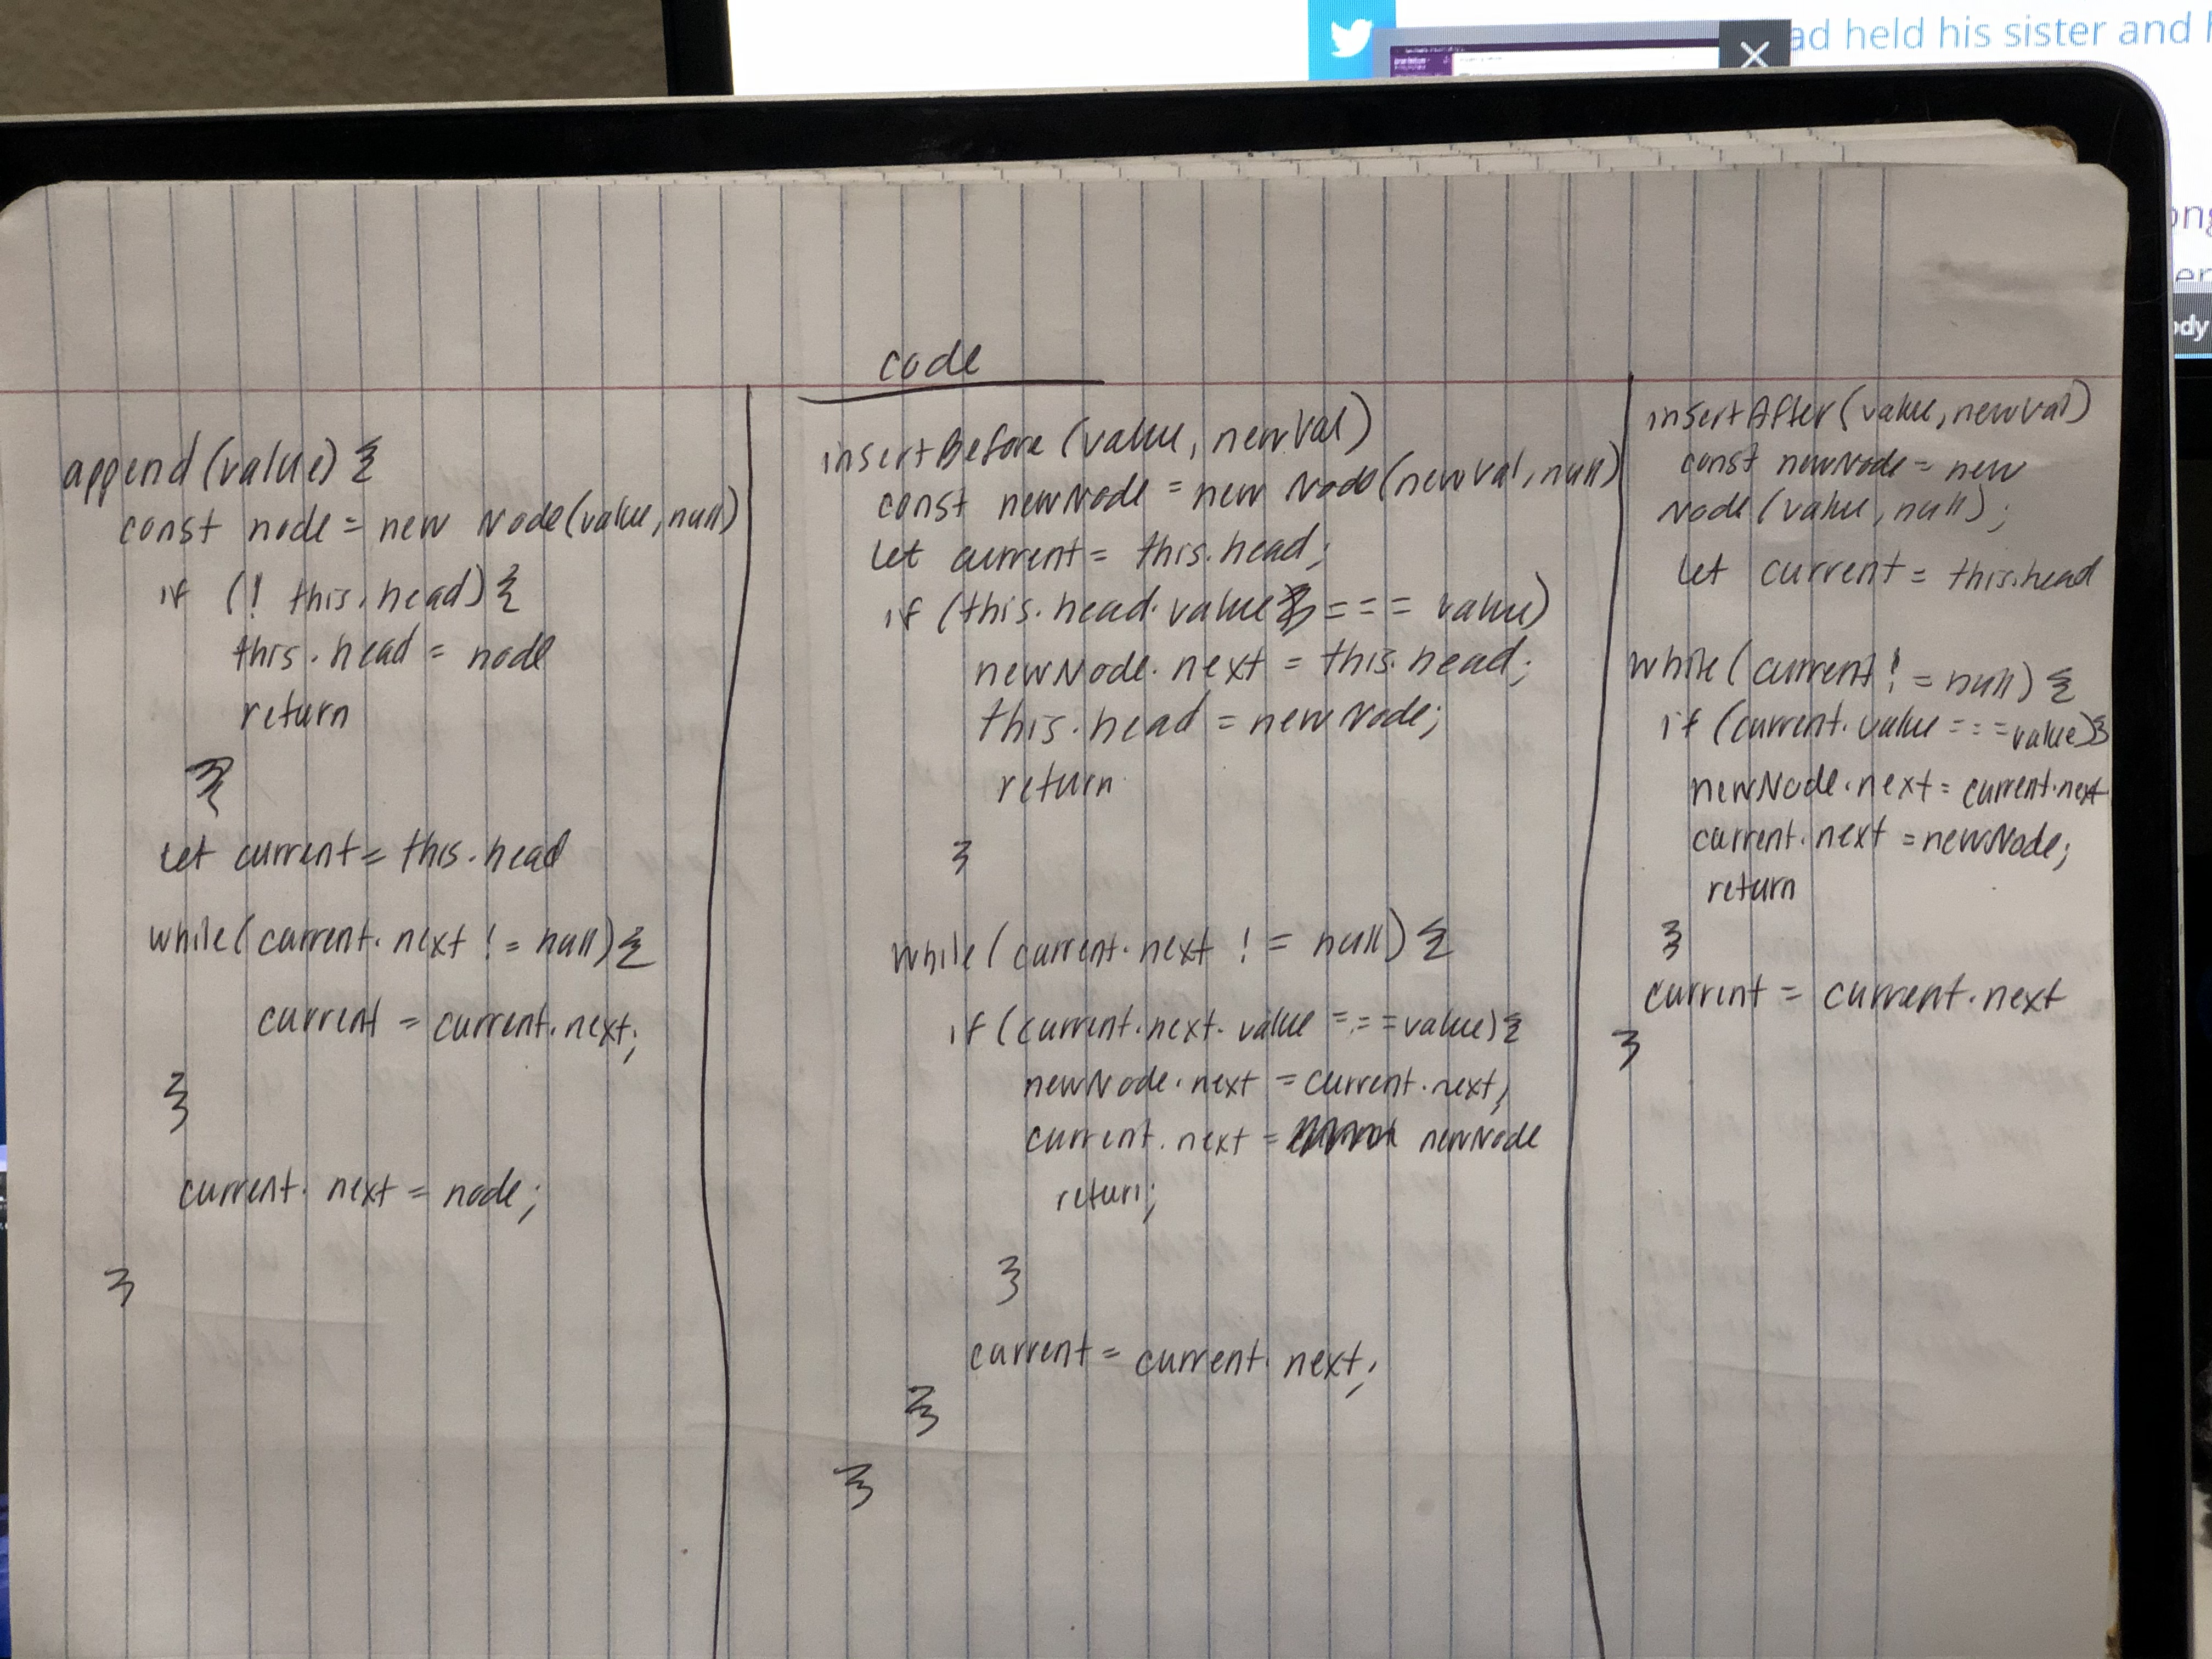 ad held his sister and h
ong
er
ody
code
append(value) {
const node = new Node(value, null)
if (! this.head) {
this.head = node
return
}
let current = this.head
while(current.next != null) {
current = current.next;
}
current.next = node;
}
insertBefore (value, newVal)
const newNode = new Node(newVal, null)
let current = this.head;
if (this.head.value === value)
newNode.next = this.head;
this.head = newNode;
return
}
while(current.next != null) {
if (current.next.value === value) {
newNode.next = current.next;
current.next = newNode
return;
}
current = current.next;
}
}
insertAfter(value, newVal)
const newNode = new
Node(value, null);
let current = this.head
while(current != null) {
if (current.value === value) {
newNode.next = current.next
current.next = newNode;
return
}
current = current.next
}